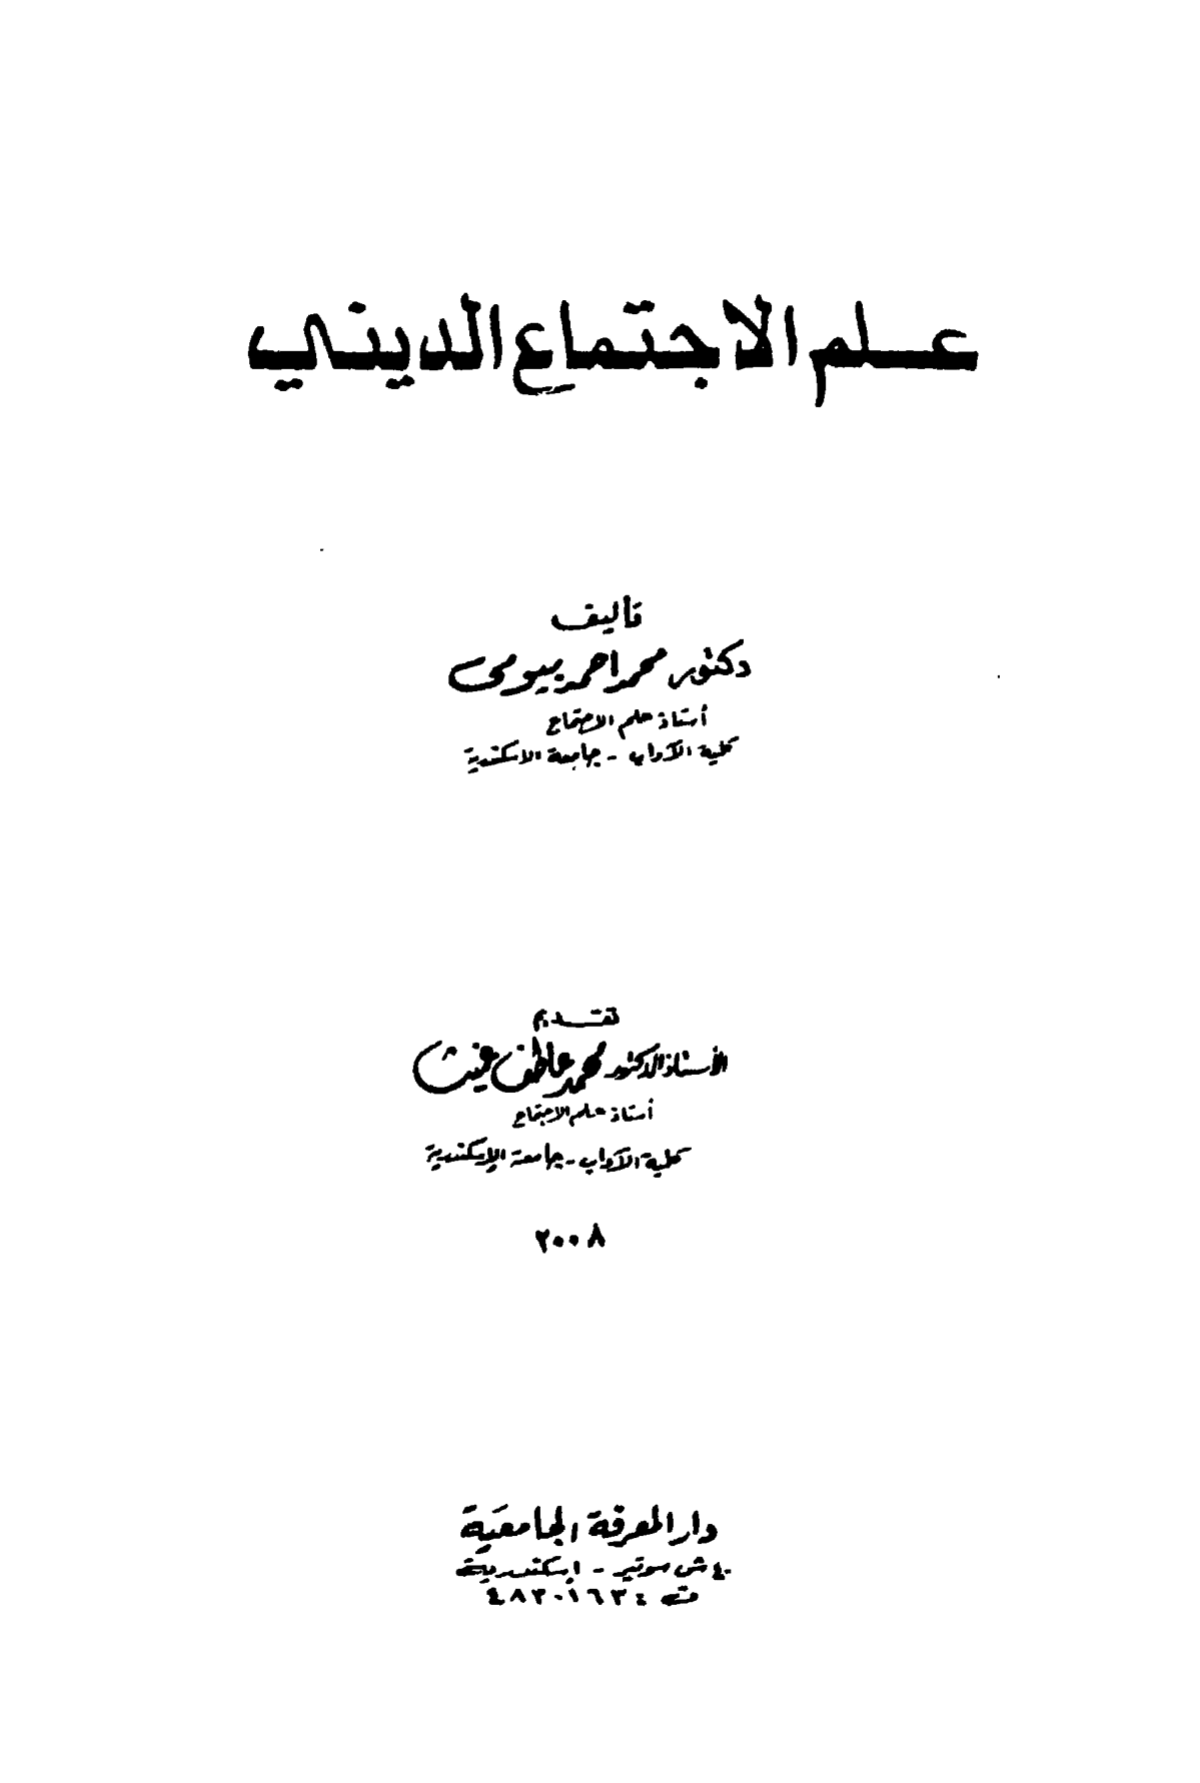 علم الاجتماع الديني
تأليف
دكتور محمد احمد بيومى
أستاذ علم الاجتماع
كلية الآداب - جامعة الاسكندرية
تقديم
الأستاذ الدكتور محمد عاطف غيث
أستاذ علم الاجتماع
كلية الآداب - جامعة الإسكندرية
٢٠٠٨
دار المعرفة الجامعية
٤٠ ش سوتير - اسكندرية
ت : ٤٨٣٠١٦٣